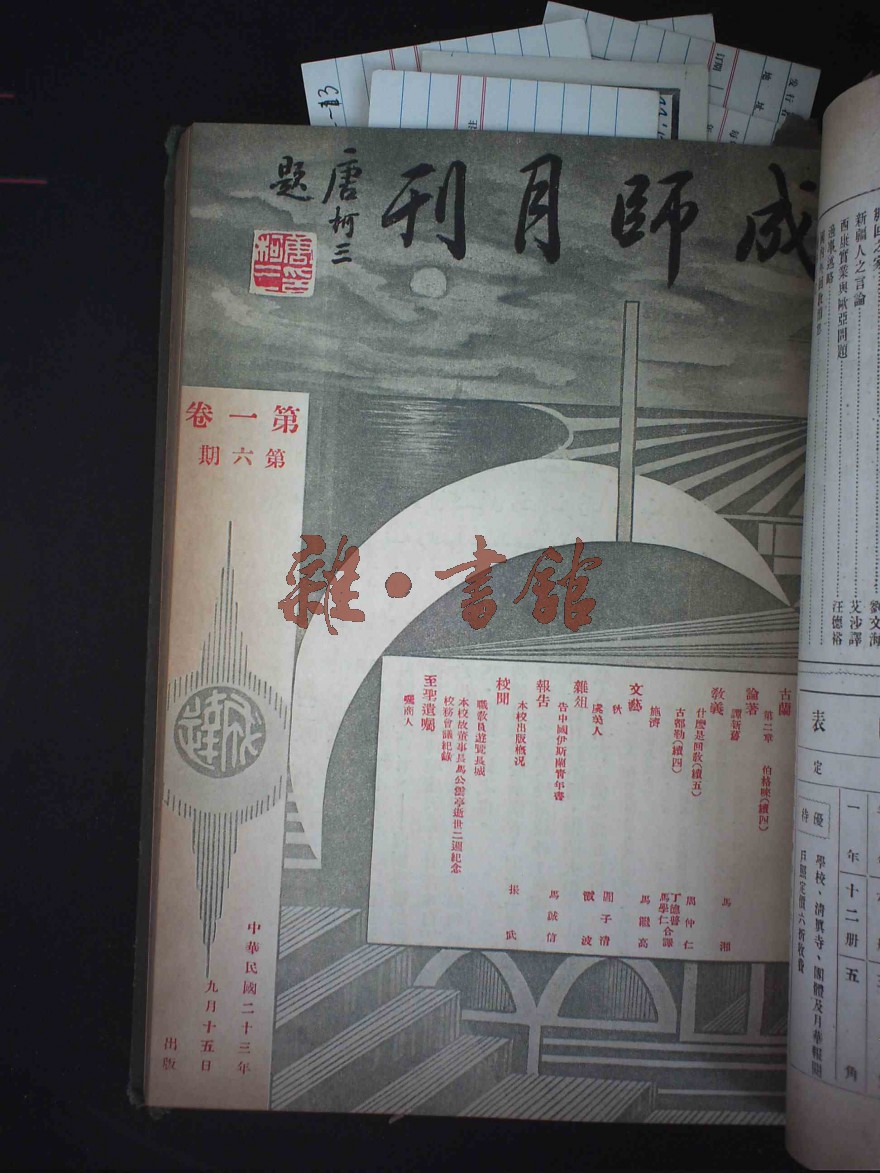 成師月刊
唐柯三
題
唐柯三印
第一卷
第六期
雜·書館
古蘭
第二章 伯格賴(續四)
論著
譚新舊 馬湘
教義
什麼是回教(續五) 周仲仁
古都勒(續四) 丁德普 馬學仁 合譯
文藝
施濟 馬龍高
秋
虞美人 閻子清
雜俎 微波
告中國伊斯蘭青年書 馬誠信
報告
本校出版概况 張武
校聞
職教員遊覽長城
本校故董事長馬公雲亭逝世二週紀念
校務會議紀錄
至聖遺囑
囑商人
中華民國二十三年
九月十五日
出版
新疆人之言論 艾沙譯
西康實業與歐亞問題 汪德裕
劉文海
表
定
優待
學校、清眞寺、團體及月華報閱
戶照定價六折收費
一年十二册五角